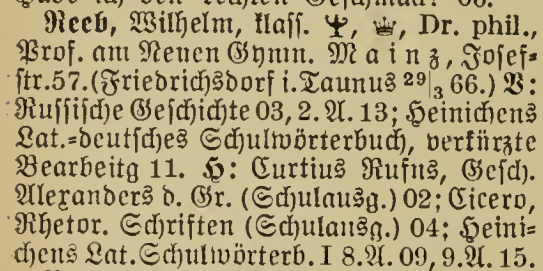 Reeb, Wilhelm, klass. Dr. phil.,
Prof. am Neuen Gymn. Mainz, Josef=
str.57.(Friedrichsdorf i.Taunus 29|3 66.) V:
Russische Geschichte 03, 2. A. 13; Heinichens
Lat.=deutsches Schulwörterbuch, verkürzte
Bearbeitg 11. H: Curtius Rufus, Gesch.
Alexanders d. Gr. (Schulausg.) 02; Cicero,
Rhetor. Schriften (Schulausg.) 04; Heini=
chens Lat. Schulwörterb. I 8.A. 09, 9.A. 15.